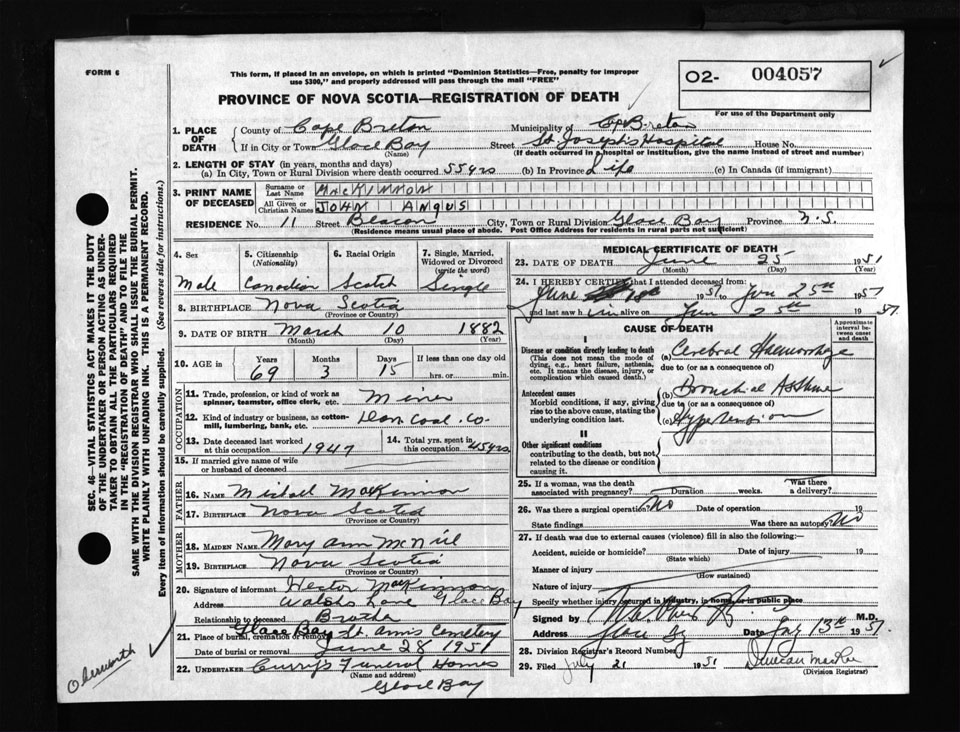 FORM 6
This form, if placed in an envelope, on which is printed "Dominion Statistics—Free, penalty for improper
use $300," and properly addressed will pass through the mail "FREE"
O2- 004057
For use of the Department only
PROVINCE OF NOVA SCOTIA—REGISTRATION OF DEATH
1. PLACE OF DEATH
County of Cape Breton Municipality of Cp Breton
If in City or Town Glace Bay Street St Joseph's Hospital House No.
(Name) (If death occurred in a hospital or institution, give the name instead of street and number)
2. LENGTH OF STAY (in years, months and days)
(a) In City, Town or Rural Division where death occurred 55 yrs (b) In Province Life (c) In Canada (if immigrant)
3. PRINT NAME OF DECEASED
Surname or Last Name MACKINNON
All Given or Christian Names JOHN ANGUS
RESIDENCE No. 11 Street Beacon City, Town or Rural Division Glace Bay Province N.S.
(Residence means usual place of abode. Post Office Address for residents in rural parts not sufficient)
4. Sex Male
5. Citizenship (Nationality) Canadian
6. Racial Origin Scotch
7. Single, Married, Widowed or Divorced (write the word) Single
8. BIRTHPLACE Nova Scotia
(Province or Country)
9. DATE OF BIRTH March 10 1882
(Month) (Day) (Year)
10. AGE in Years 69 Months 3 Days 15 If less than one day old
hrs. or min.
OCCUPATION
11. Trade, profession, or kind of work as spinner, teamster, office clerk, etc. Miner
12. Kind of industry or business, as cotton-mill, lumbering, bank, etc. Dom. Coal. Co.
13. Date deceased last worked at this occupation 1947
14. Total yrs. spent in this occupation 45 yrs
15. If married give name of wife or husband of deceased
FATHER
16. NAME Michael MacKinnon
17. BIRTHPLACE Nova Scotia
(Province or Country)
MOTHER
18. MAIDEN NAME Mary Ann McNeil
19. BIRTHPLACE Nova Scotia
(Province or Country)
20. Signature of informant Hector MacKinnon
Address Walshs Lane Glace Bay
Relationship to deceased Brother
21. Place of burial, cremation or removal Glace Bay St. Anns Cemetery
Date of burial or removal June 28 1951
22. UNDERTAKER Curry's Funeral Homes
(Name and address)
Glace Bay
MEDICAL CERTIFICATE OF DEATH
23. DATE OF DEATH June 25 1951
(Month) (Day) (Year)
24. I HEREBY CERTIFY that I attended deceased from:
June 18th 1951 to Jun 25th 1951
and last saw him alive on Jun 25th 1951
CAUSE OF DEATH
Approximate interval between onset and death
I
Disease or condition directly leading to death
(This does not mean the mode of dying, e.g., heart failure, asthenia, etc. It means the disease, injury, or complication which caused death.)
(a) Cerebral Haemorrhage
due to (or as a consequence of)
Antecedent causes
Morbid conditions, if any, giving rise to the above cause, stating the underlying condition last.
(b) Bronchial Asthma
due to (or as a consequence of)
(c) Hypertension
II
Other significant conditions
contributing to the death, but not related to the disease or condition causing it.
25. If a woman, was the death associated with pregnancy? Duration weeks. Was there a delivery?
26. Was there a surgical operation? No Date of operation 19
State findings Was there an autopsy? No
27. If death was due to external causes (violence) fill in also the following:—
Accident, suicide or homicide? Date of injury 19
(State which)
Manner of injury
(How sustained)
Nature of injury
Specify whether injury occurred in industry, in home, or in public place
Signed by M.D.
Address Glace Bay Date July 13th 1951
28. Division Registrar's Record Number
29. Filed July 21 1951 Duncan MacRae
(Division Registrar)
SEC. 46—VITAL STATISTICS ACT MAKES IT THE DUTY
OF THE UNDERTAKER OR PERSON ACTING AS UNDER-
TAKER TO OBTAIN ALL THE PARTICULARS REQUIRED
IN THE "REGISTRATION OF DEATH" AND TO FILE THE
SAME WITH THE DIVISION REGISTRAR WHO SHALL ISSUE THE BURIAL PERMIT.
WRITE PLAINLY WITH UNFADING INK. THIS IS A PERMANENT RECORD.
Every item of information should be carefully supplied. (See reverse side for instructions.)